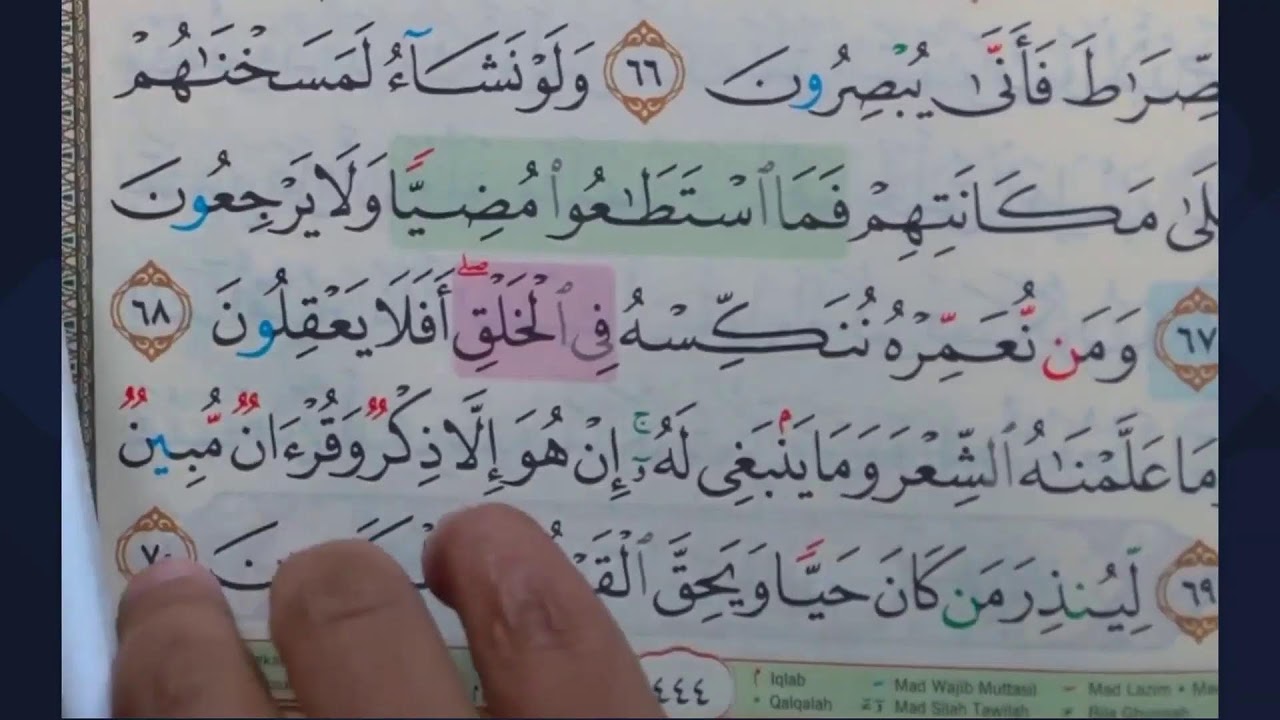 صِّرَٰطَ فَأَنَّىٰ يُبْصِرُونَ ٦٦ وَلَوْ نَشَآءُ لَمَسَخْنَٰهُمْ
مَكَانَتِهِمْ فَمَا ٱسْتَطَٰعُوا۟ مُضِيًّا وَلَا يَرْجِعُونَ
٦٧ وَمَن نُّعَمِّرْهُ نُنَكِّسْهُ فِى ٱلْخَلْقِ ۖ أَفَلَا يَعْقِلُونَ ٦٨
مَا عَلَّمْنَٰهُ ٱلشِّعْرَ وَمَا يَنۢبَغِى لَهُۥٓ ۚ إِنْ هُوَ إِلَّا ذِكْرٌ وَقُرْءَانٌ مُّبِينٌ
٦٩ لِّيُنذِرَ مَن كَانَ حَيًّا وَيَحِقَّ ٧٠
٤٤٤
Iqlab Mad Wajib Muttasil Mad Lazim
Qalqalah Mad Silah Tawilah